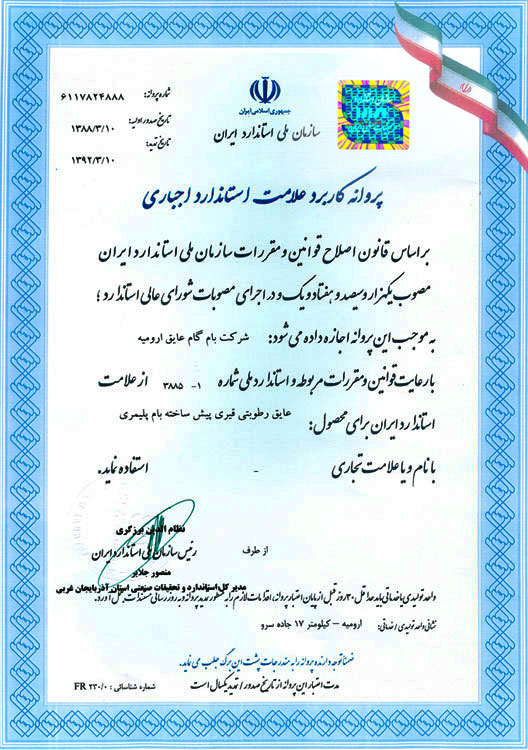 جمهوری اسلامی ایران
سازمان ملی استاندارد ایران
شماره پروانه: ۶۱۱۷۸۲۴۸۸۸
تاریخ صدور اولیه: ۱۳۸۸/۳/۱۰
تاریخ تمدید: ۱۳۹۲/۳/۱۰
پروانه کاربرد علامت استاندارد اجباری
بر اساس قانون اصلاح قوانین و مقررات سازمان ملی استاندارد ایران
مصوب یکهزار و سیصد و هفتاد و یک و در اجرای مصوبات شورای عالی استاندارد ؛
به موجب این پروانه اجازه داده می شود: شرکت بام گام عایق ارومیه
با رعایت قوانین و مقررات مربوطه و استاندارد ملی شماره ۱- ۳۸۸۵ از علامت
استاندارد ایران برای محصول: عایق رطوبتی قیری پیش ساخته بام پلیمری
با نام و یا علامت تجاری - استفاده نماید.
نظام الدین برزگری
رئیس سازمان ملی استاندارد ایران
از طرف
منصور جلابر
مدیر کل استاندارد و تحقیقات صنعتی استان آذربایجان غربی
واحد تولیدی یا خدماتی باید حداقل ۳۰ روز قبل از پایان اعتبار پروانه، اقدامات لازم را به منظور تمدید پروانه و به روز رسانی مستندات بعمل آورد.
نشانی واحد تولیدی / خدماتی: ارومیه – کیلومتر ۱۷ جاده سرو
ضمناً توجه دارنده پروانه را به مندرجات پشت این برگ جلب می نماید.
مدت اعتبار این پروانه از تاریخ صدور / تمدید یکسال است
شماره شناسائی: FR ۲۳۰/۰